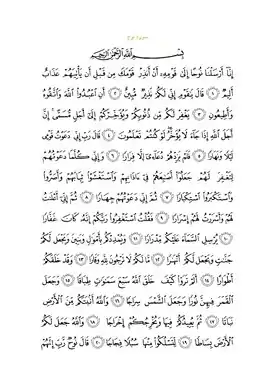 سورة نوح
بسم الله الرحمن الرحيم
إنا أرسلنا نوحا إلى قومه أن أنذر قومك من قبل أن يأتيهم عذاب
أليم ١ قال يقوم إني لكم نذير مبين ٢ أن اعبدوا الله واتقوه
وأطيعون ٣ يغفر لكم من ذنوبكم ويؤخركم إلى أجل مسمى إن
أجل الله إذا جاء لا يؤخر لو كنتم تعلمون ٤ قال رب إني دعوت قومي
ليلا ونهارا ٥ فلم يزدهم دعاءي إلا فرارا ٦ وإني كلما دعوتهم
لتغفر لهم جعلوا أصبعهم في ءاذانهم واستغشوا ثيابهم وأصروا
واستكبروا استكبارا ٧ ثم إني دعوتهم جهارا ٨ ثم إني أعلنت
لهم وأسررت لهم إسرارا ٩ فقلت استغفروا ربكم إنه كان غفارا
١٠ يرسل السماء عليكم مدرارا ١١ ويمددكم بأمول وبنين ويجعل لكم
جنت ويجعل لكم أنهرا ١٢ ما لكم لا ترجون لله وقارا ١٣ وقد خلقكم
أطوارا ١٤ ألم تروا كيف خلق الله سبع سموت طباقا ١٥ وجعل
القمر فيهن نورا وجعل الشمس سراجا ١٦ والله أنبتكم من الأرض
نباتا ١٧ ثم يعيدكم فيها ويخرجكم إخراجا ١٨ والله جعل لكم
الأرض بساطا ١٩ لتسلكوا منها سبلا فجاجا ٢٠ قال نوح رب إنهم